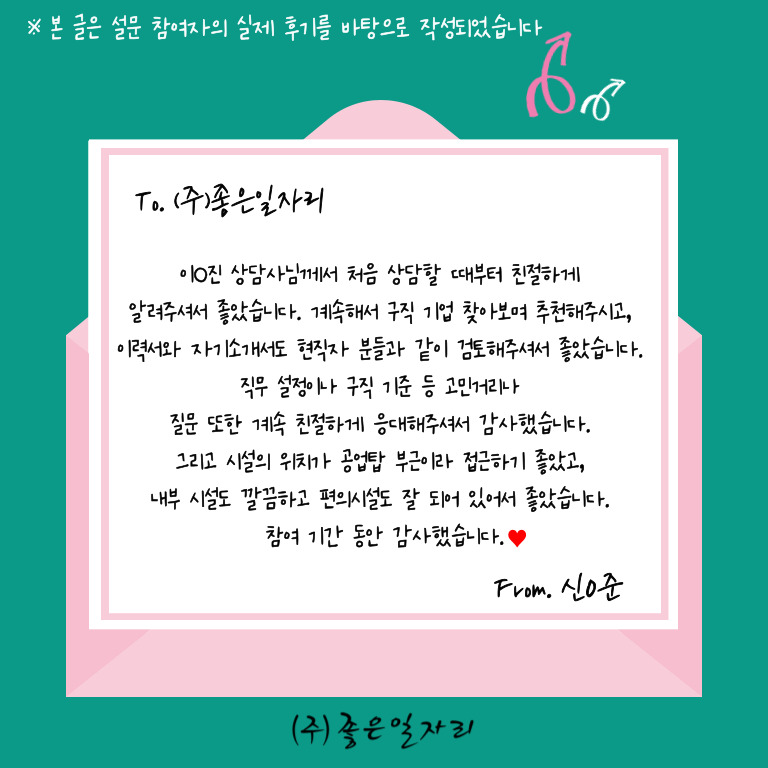 ※ 본 글은 설문 참여자의 실제 후기를 바탕으로 작성되었습니다
To. (주)좋은일자리
이O진 상담사님께서 처음 상담할 때부터 친절하게
알려주셔서 좋았습니다. 계속해서 구직 기업 찾아보며 추천해주시고,
이력서와 자기소개서도 현직자 분들과 같이 검토해주셔서 좋았습니다.
직무 설정이나 구직 기준 등 고민거리나
질문 또한 계속 친절하게 응대해주셔서 감사했습니다.
그리고 시설의 위치가 공업탑 부근이라 접근하기 좋았고,
내부 시설도 깔끔하고 편의시설도 잘 되어 있어서 좋았습니다.
참여 기간 동안 감사했습니다.♥
From. 신O준
(주)좋은일자리